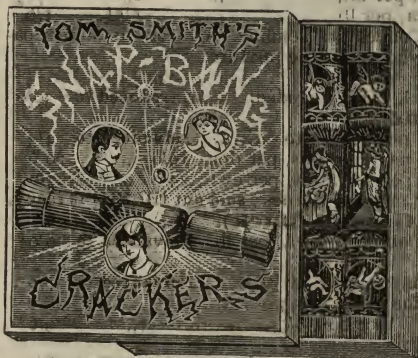 TOM SMITH'S
SNAP-BANG
CRACKERS